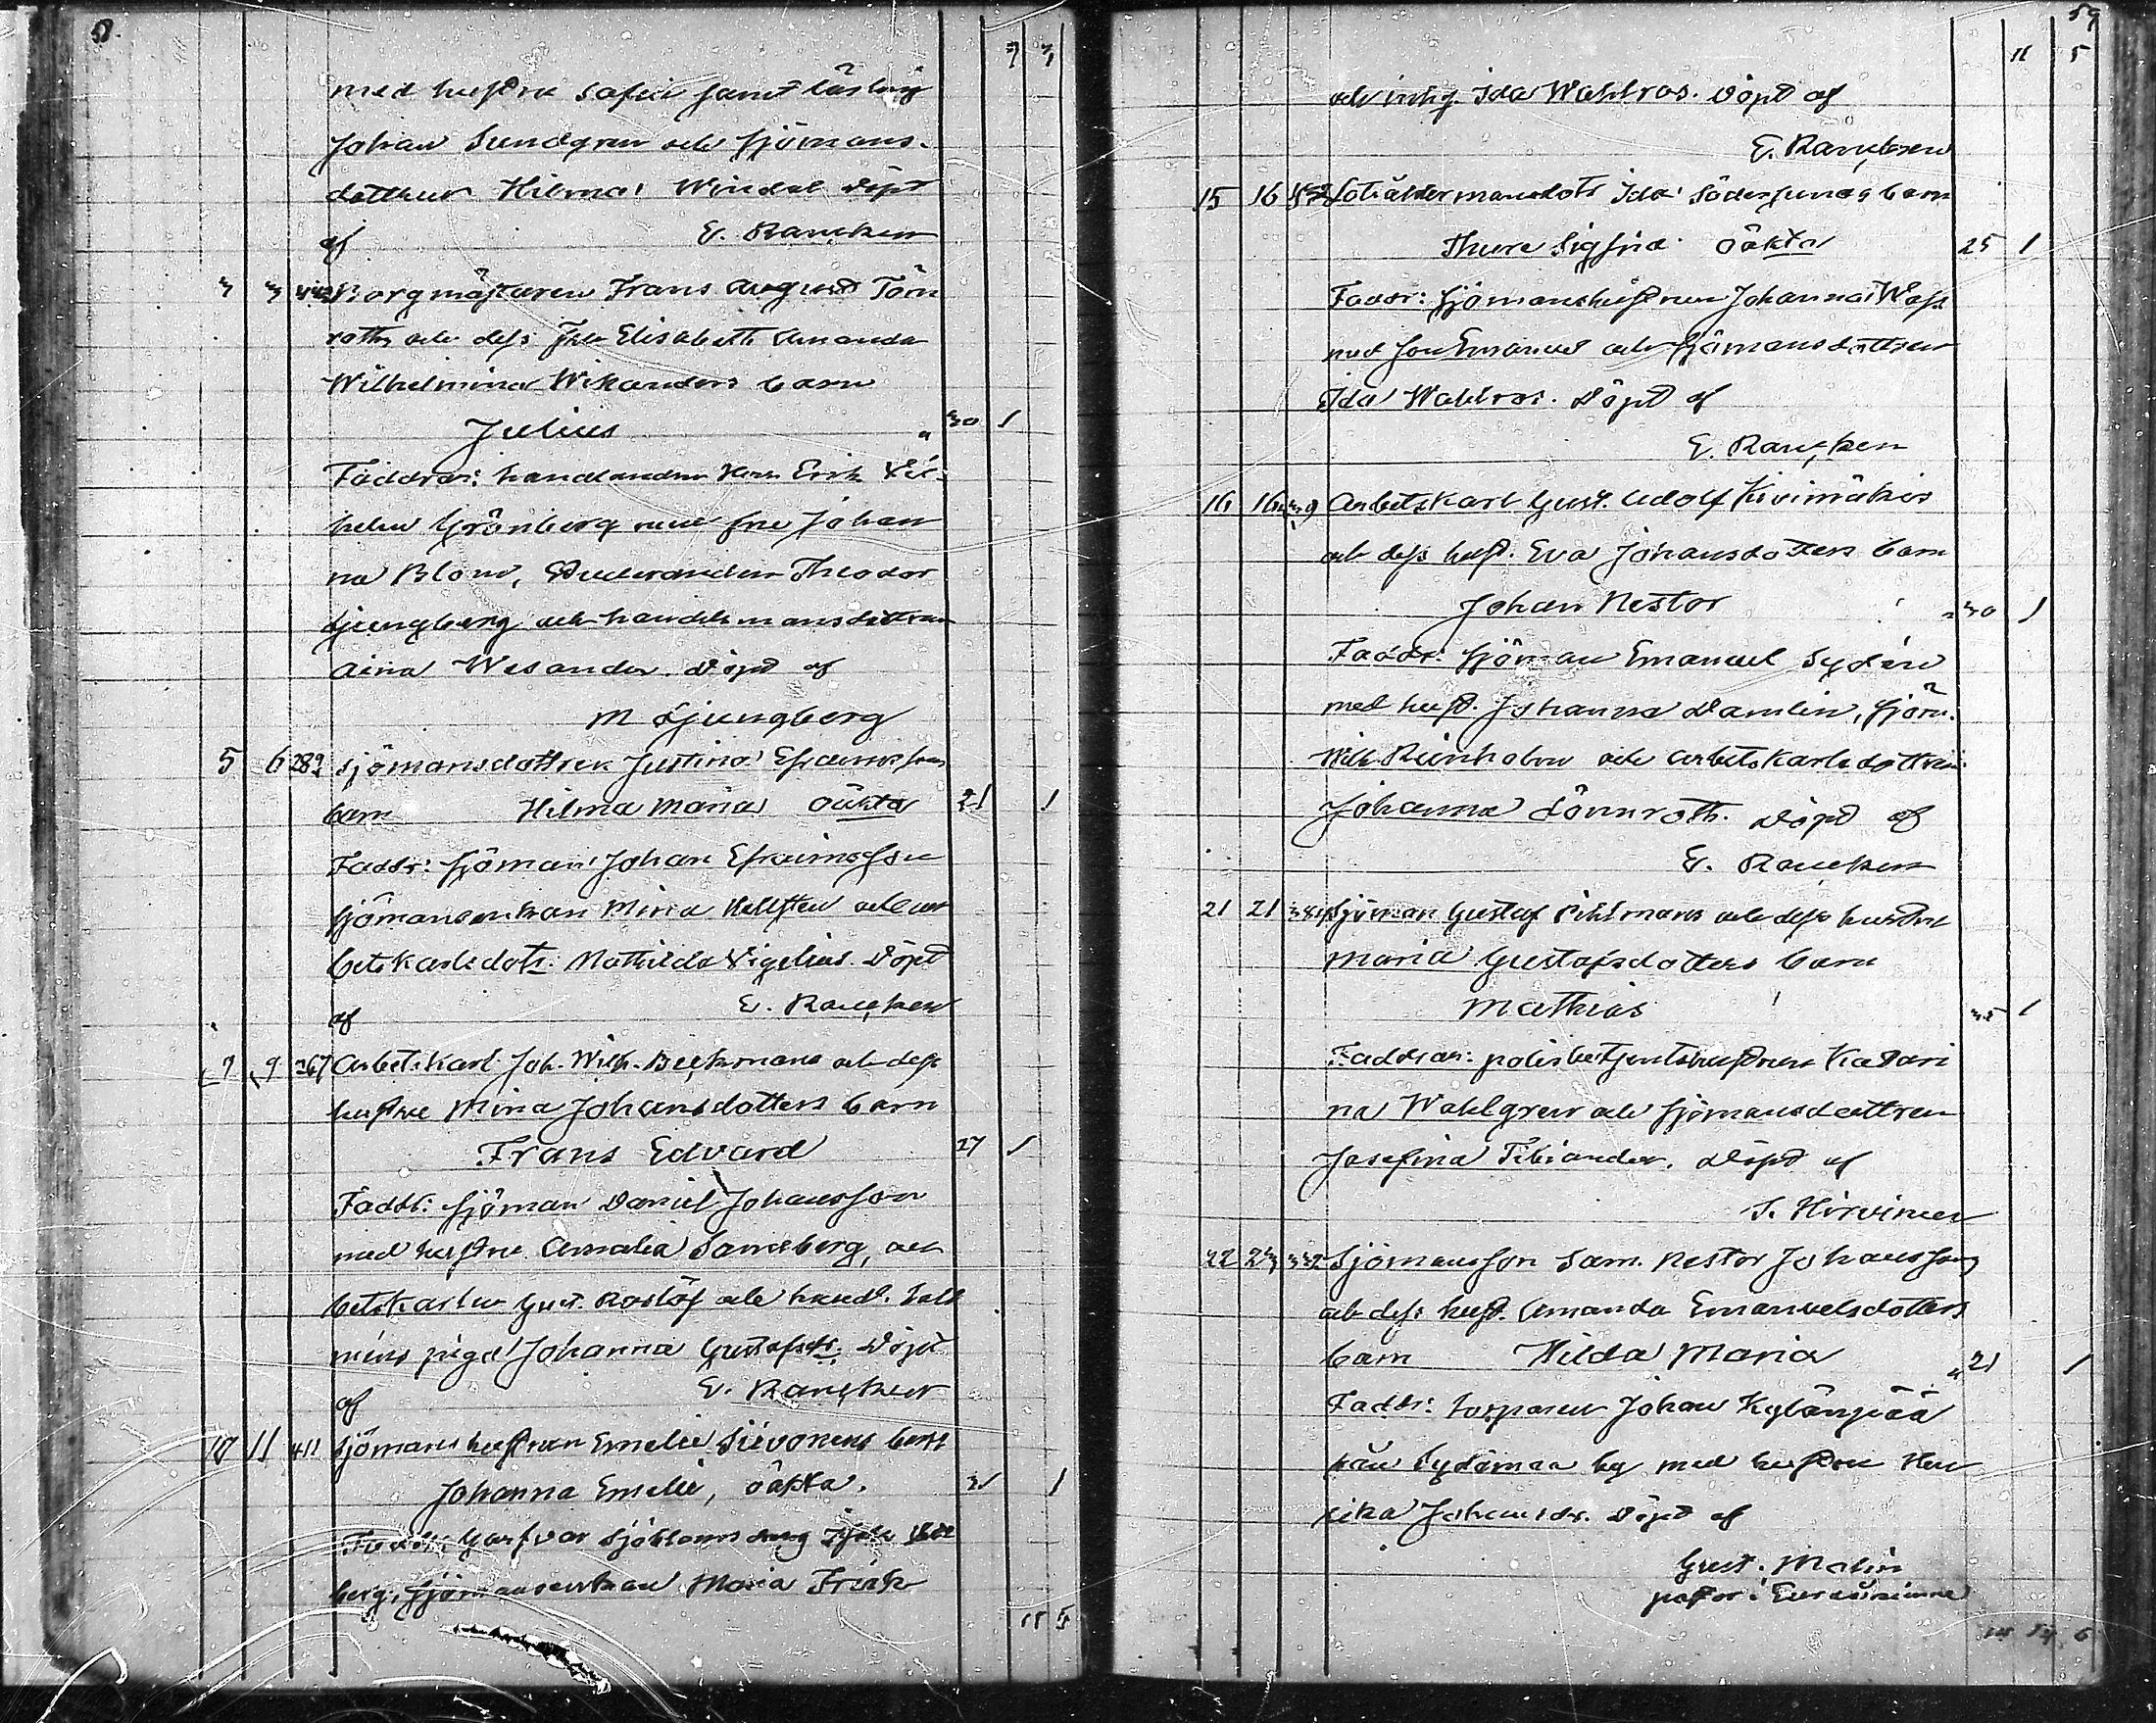 58.
7 7
med hustru Sofia samt lärling
Johan Sundgren och sjömans-
dottren Hilma Windal Döpt
af E. Rancken
3 3 Borgmästaren Frans August Törn
roths och dess Fru Elisabeth Amanda
Wilhelmina Wikanders barn
Julius " 30 1
Faddrar: handlanden Herr Erik Vil-
helm Grönberg med fru Johan
na Blom, Studeranden Theodor
Ljungberg och handelsmansdottren
Aina Wesander. Döpt af
M Ljungberg
5 6 289 Sjömansdottren Justina Efraimsson
barn Hilma Maria oäkta 21 1
Faddr: sjöman Johan Efraimsson
sjömansenkan Mina Hellsten och ar
betskarlsdotr. Mathilda Vigelius. Döpt
af E. Rancken
7 9 267 Arbetskarl Joh. Wilh. Beckmans och dess
hustru Mina Johansdotters barn
Frans Edvard 27 1
Faddr: sjöman Daniel Johansson
med hustru Amalia Sandberg, ar
betskarlen Gust. Roslöf och handl. Sall
mens piga Johanna Gustafsdr. Döpt
af E. Rancken
10 11 411 Sjömanshustrun Emelie Sievonens barn
Johanna Emelie, oäkta. 31 1
Faddr: Garfvar Sjöbloms dräng
berg, sjömansenkan Maria Frisk
11 5
59
11 5
och inhg. Ida Wahlros. Döpt af
E. Rancken
15 16 Lotsåldermansdotr Ida Söderlunds barn
Thure Sigfrid oäkta 25 1
Faddr: sjömanshustrun Johanna Wass
med son Emanuel och sjömansdottren
Ida Wahlros. Döpt af
E. Rancken
16 16 Arbetskarl Gust. Adolf Kivimäkis
och dess hust. Eva Johansdotters barn
Johan Nestor " 30 1
Faddr: sjöman Emanuel Sydén
med hust. Johanna Damlin, sjöm.
Wilh. Reinholm och arbetskarlsdottren
Johanna Lönnroth. Döpt af
E. Rancken
21 21 384 Sjöman Gustaf Pihlmans och dess hustru
Maria Gustafsdotters barn
Mathias 35 1
Faddrar: polisbetjentshustrun Katari
na Wahlgren och sjömansdottren
Josefina Fihiander. Döpt af
S. Hirvinen
22 23 332 Sjömansson Sam. Nestor Johanssons
och dess hust. Amanda Emanuelsdotters
barn Hilda Maria " 21 1
Faddr: torparen Johan Kylänpää
från Sydänmaa by med hustru Hen
rika Johansdr. Döpt af
Gust. Malin
pastor i Euraåminne
14 14 6